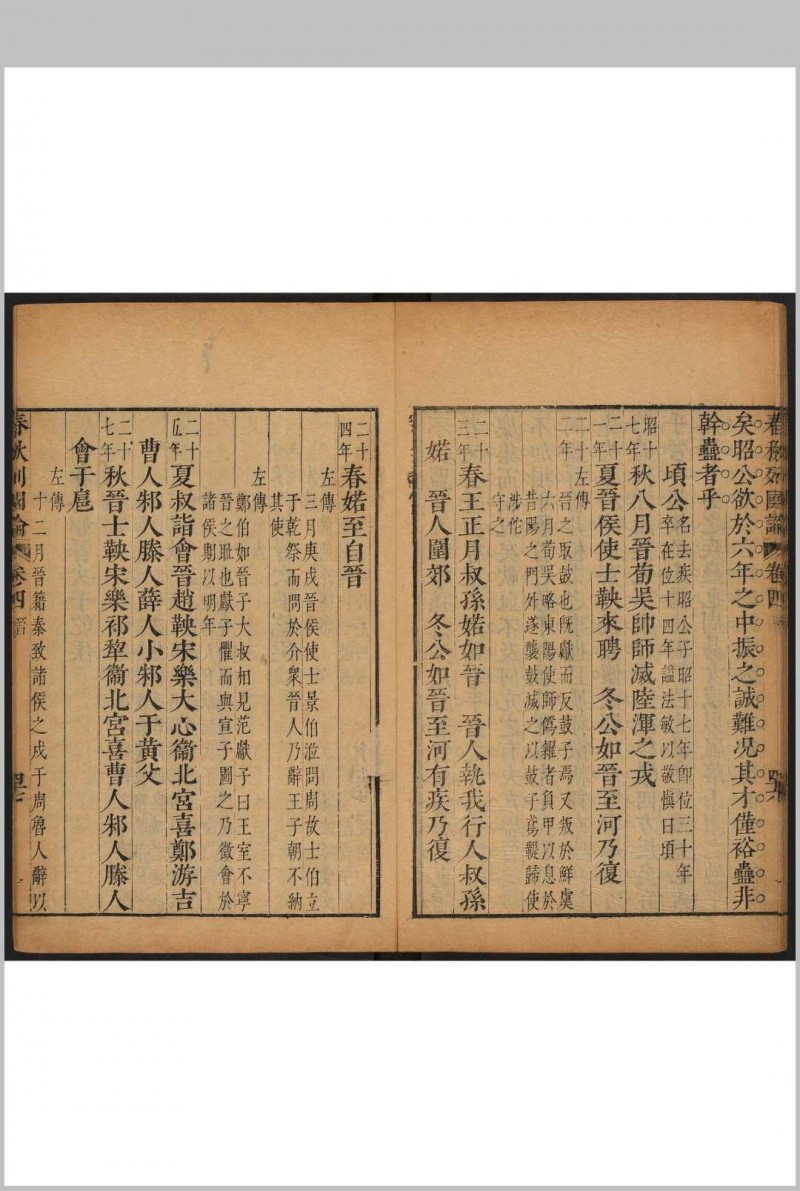 春秋列國論 卷四
矣昭公欲於六年之中振之誠難況其才僅裕蠱非
幹蠱者乎
頃公名去疾昭公子昭十七年卽位三十年
卒在位十四年諡法敏以敬愼曰頃
昭十七年秋八月晉荀吳帥師滅陸渾之戎
二十一年夏晉侯使士鞅來聘 冬公如晉至河乃復
左傳
二十二年 晉之取鼓也旣獻而反鼓子焉又叛於鮮虞
六月荀吳略東陽使師僞糴者負甲以息於
昔陽之門外遂襲鼓滅之以鼓子鳶鞮歸使
涉佗
守之
二十三年春王正月叔孫婼如晉 晉人執我行人叔孫
婼 晉人圍郊 冬公如晉至河有疾乃復
二十四年春婼至自晉
左傳
三月庚戌晉侯使士景伯涖問周故士伯立
于乾祭而問於介衆晉人乃辭王子朝不納
其使
左傳
鄭伯如晉子大叔相見范獻子曰王室不寧
晉之耻也獻子懼而與宣子圖之乃徵會於
諸侯期以明年
二十五年夏叔詣會晉趙鞅宋樂大心衞北宮喜鄭游吉
曹人邾人滕人薛人小邾人于黃父
二十七年秋晉士鞅宋樂祁犂衞北宮喜曹人邾人滕人
會于扈
左傳
十二月晉籍秦致諸侯之戍于周魯人辭以
春秋列國論 卷四 晉